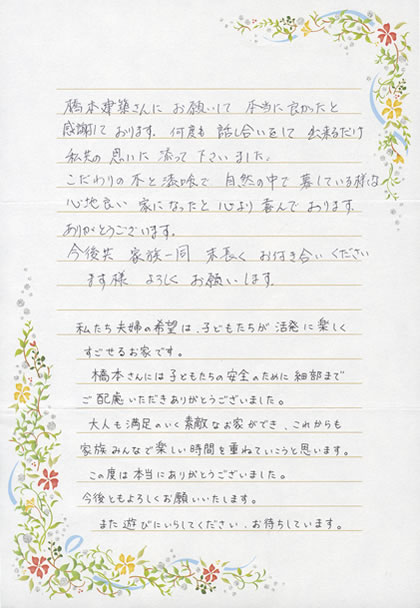 橋本建築さんに お願いして 本当に良かったと
感謝して おります。何度も 話し合いをして 出来るだけ
私共の 思いに 添って 下さいました。
こだわりの 木と漆喰で 自然の中で 暮している様な
心地良い 家になったと 心より 喜んで おります。
ありがとうございます。
今後共 家族一同 末長く お付き合い ください
ます様 よろしく お願いします。
私たち夫婦の希望は、子どもたちが 活発に楽しく
すごせるお家です。
橋本さんには子どもたちの安全のために細部まで
ご配慮いただきありがとうございました。
大人も満足のいく素敵なお家ができ、これからも
家族みんなで楽しい時間を重ねていこうと思います。
この度は本当にありがとうございました。
今後ともよろしくお願いいたします。
また遊びにいらしてください。お待ちしています。